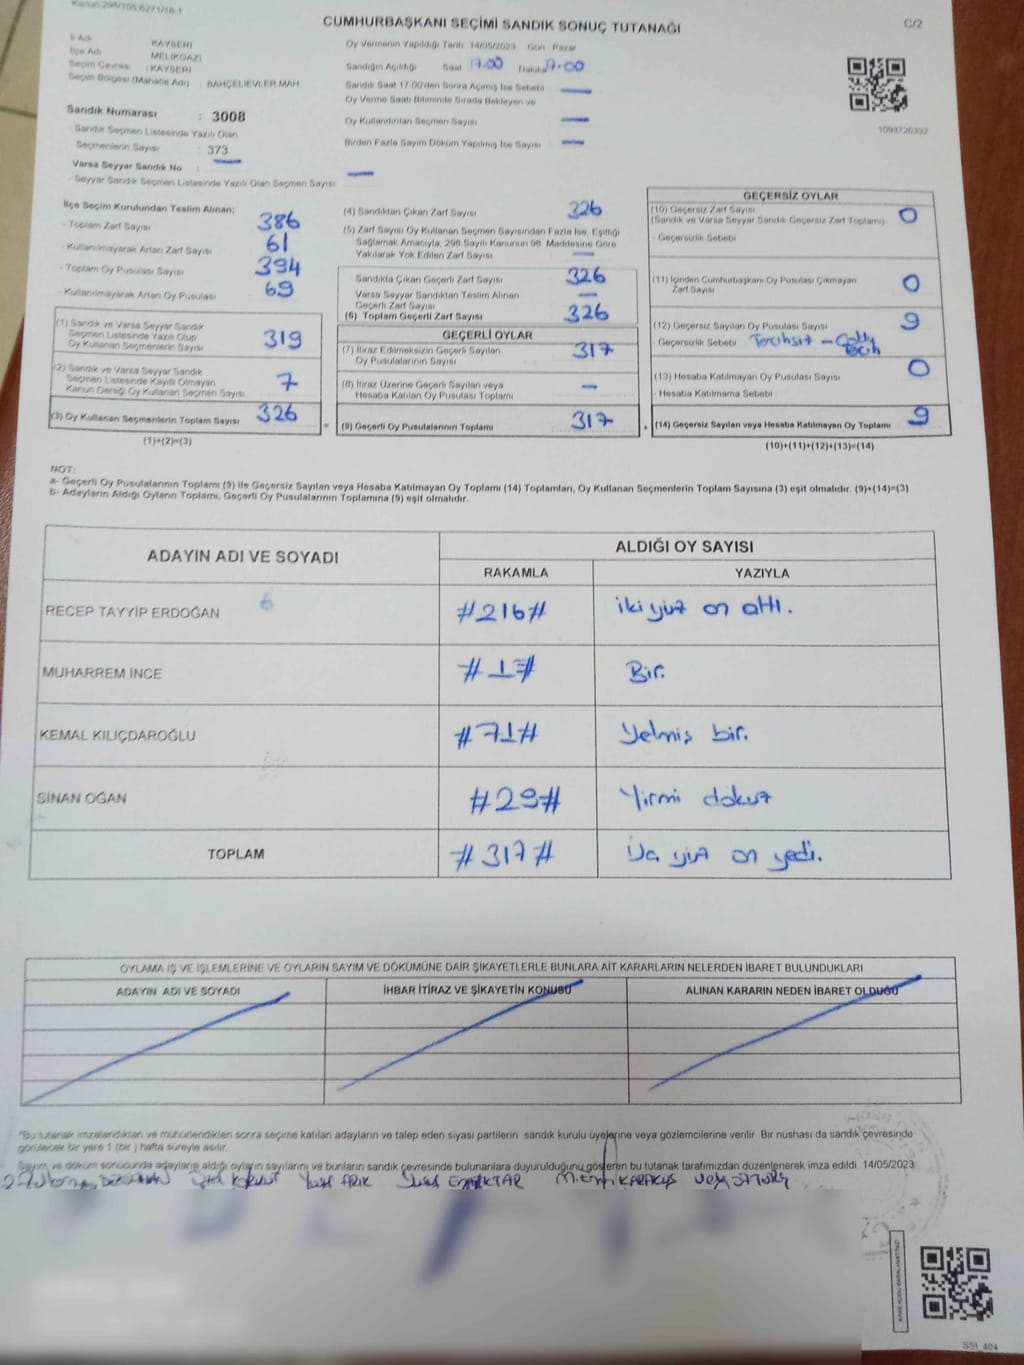 Kanun 298/105.6271/18-1
CUMHURBAŞKANI SEÇİMİ SANDIK SONUÇ TUTANAĞI
C/2
İl Adı KAYSERİ
İlçe Adı MELİKGAZİ
Seçim Çevresi : KAYSERİ
Seçim Bölgesi (Mahalle Adı) : BAHÇELİEVLER MAH
Sandık Numarası : 3008
- Sandık Seçmen Listesinde Yazılı Olan
Seçmenlerin Sayısı : 373
Varsa Seyyar Sandık No : —
- Seyyar Sandık Seçmen Listesinde Yazılı Olan Seçmen Sayısı —
Oy Vermenin Yapıldığı Tarih 14/05/2023 Gün Pazar
Sandığın Açıldığı Saat 17.00 Dakika 17.00
Sandık Saat 17.00'den Sonra Açımış İse Sebebi —
Oy Verme Saati Bitiminde Sırada Bekleyen ve
Oy Kullandırılan Seçmen Sayısı —
Birden Fazla Sayım Döküm Yapılmış İse Sayısı —
1093726332
İlçe Seçim Kurulundan Teslim Alınan;
- Toplam Zarf Sayısı 386
- Kullanılmayarak Artan Zarf Sayısı 61
- Toplam Oy Pusulası Sayısı 394
- Kullanılmayarak Artan Oy Pusulası 69
(1) Sandık ve Varsa Seyyar Sandık
Seçmen Listesinde Yazılı Olup
Oy Kullanan Seçmenlerin Sayısı 319
(2) Sandık ve Varsa Seyyar Sandık
Seçmen Listesinde Kayıtlı Olmayan
Kanun Gereği Oy Kullanan Seçmen Sayısı 7
(3) Oy Kullanan Seçmenlerin Toplam Sayısı 326
(1)+(2)=(3)
(4) Sandıktan Çıkan Zarf Sayısı 326
(5) Zarf Sayısı Oy Kullanan Seçmen Sayısından Fazla İse, Eşitliği
Sağlamak Amacıyla, 298 Sayılı Kanunun 98. Maddesine Göre
Yakılarak Yok Edilen Zarf Sayısı —
Sandıkta Çıkan Geçerli Zarf Sayısı 326
Varsa Seyyar Sandıktan Teslim Alınan
Geçerli Zarf Sayısı —
(6) Toplam Geçerli Zarf Sayısı 326
GEÇERLİ OYLAR
(7) İtiraz Edilmeksizin Geçerli Sayılan
Oy Pusulalarının Sayısı 317
(8) İtiraz Üzerine Geçerli Sayılan veya
Hesaba Katılan Oy Pusulası Toplamı —
=
(9) Geçerli Oy Pusulalarının Toplamı 317
+
GEÇERSİZ OYLAR
(10) Geçersiz Zarf Sayısı
(Sandık ve Varsa Seyyar Sandık Geçersiz Zarf Toplamı) 0
- Geçersizlik Sebebi
(11) İçinden Cumhurbaşkanı Oy Pusulası Çıkmayan
Zarf Sayısı 0
(12) Geçersiz Sayılan Oy Pusulası Sayısı 9
- Geçersizlik Sebebi Tercihsiz -
(13) Hesaba Katılmayan Oy Pusulası Sayısı 0
- Hesaba Katılmama Sebebi
(14) Geçersiz Sayılan veya Hesaba Katılmayan Oy Toplamı 9
(10)+(11)+(12)+(13)=(14)
NOT:
a- Geçerli Oy Pusulalarının Toplamı (9) ile Geçersiz Sayılan veya Hesaba Katılmayan Oy Toplamı (14) Toplamları, Oy Kullanan Seçmenlerin Toplam Sayısına (3) eşit olmalıdır. (9)+(14)=(3)
b- Adayların Aldığı Oyların Toplamı, Geçerli Oy Pusulalarının Toplamına (9) eşit olmalıdır.
ADAYIN ADI VE SOYADI
ALDIĞI OY SAYISI
RAKAMLA YAZIYLA
RECEP TAYYİP ERDOĞAN 6 #216# iki yüz on altı.
MUHARREM İNCE #1# Bir.
KEMAL KILIÇDAROĞLU #71# Yetmiş bir.
SİNAN OĞAN #29# Yirmi dokuz
TOPLAM #317# Üç yüz on yedi.
OYLAMA İŞ VE İŞLEMLERİNE VE OYLARIN SAYIM VE DÖKÜMÜNE DAİR ŞİKAYETLERLE BUNLARA AİT KARARLARIN NELERDEN İBARET BULUNDUKLARI
ADAYIN ADI VE SOYADI İHBAR İTİRAZ VE ŞİKAYETİN KONUSU ALINAN KARARIN NEDEN İBARET OLDUĞU
"Bu tutanak imzalandıktan ve mühürlendikten sonra seçime katılan adayların ve talep eden siyasi partilerin sandık kurulu üyelerine veya gözlemcilerine verilir. Bir nüshası da sandık çevresinde
görülecek bir yere 1 (bir ) hafta süreyle asılır.
Sayım ve döküm sonucunda adayların aldığı oyların sayılarını ve bunların sandık çevresinde bulunanlara duyurulduğunu gösteren bu tutanak tarafımızdan düzenlenerek imza edildi. 14/05/2023
Yusuf ARIK Yusuf KARAKUŞ
SSI_404